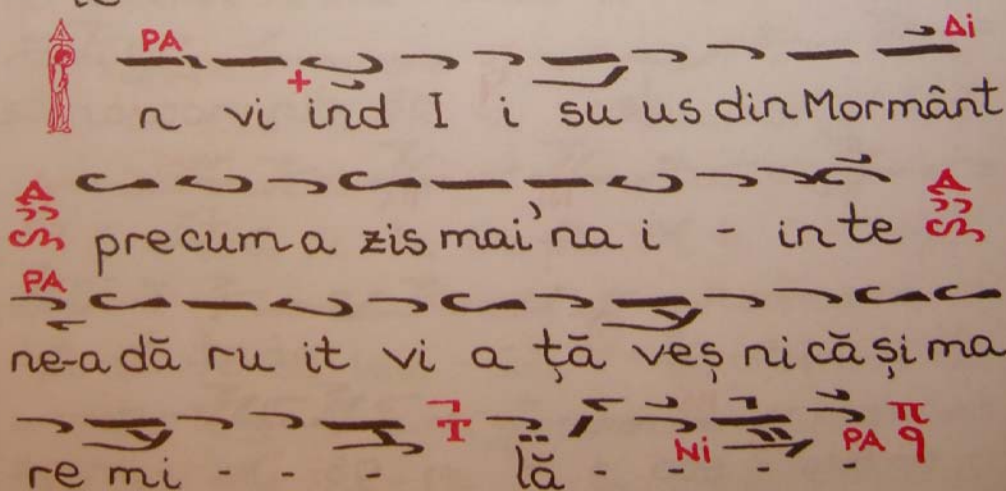 PA Δi
n vi ind I i su us din Mormânt
precum a zis mai 'na i - in te
PA
ne-a dă ru it vi a ță veș ni că și ma
Ni PA π q
re mi - - - lă - - - - -